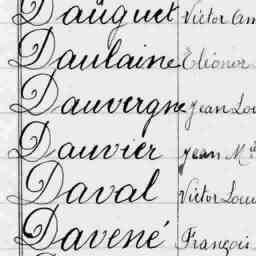 Dauguet Victor Am
Daulaine Éléonor
Dauvergne Jean Lou
Dauvier Jean M
Daval Victor Loui
Davené François